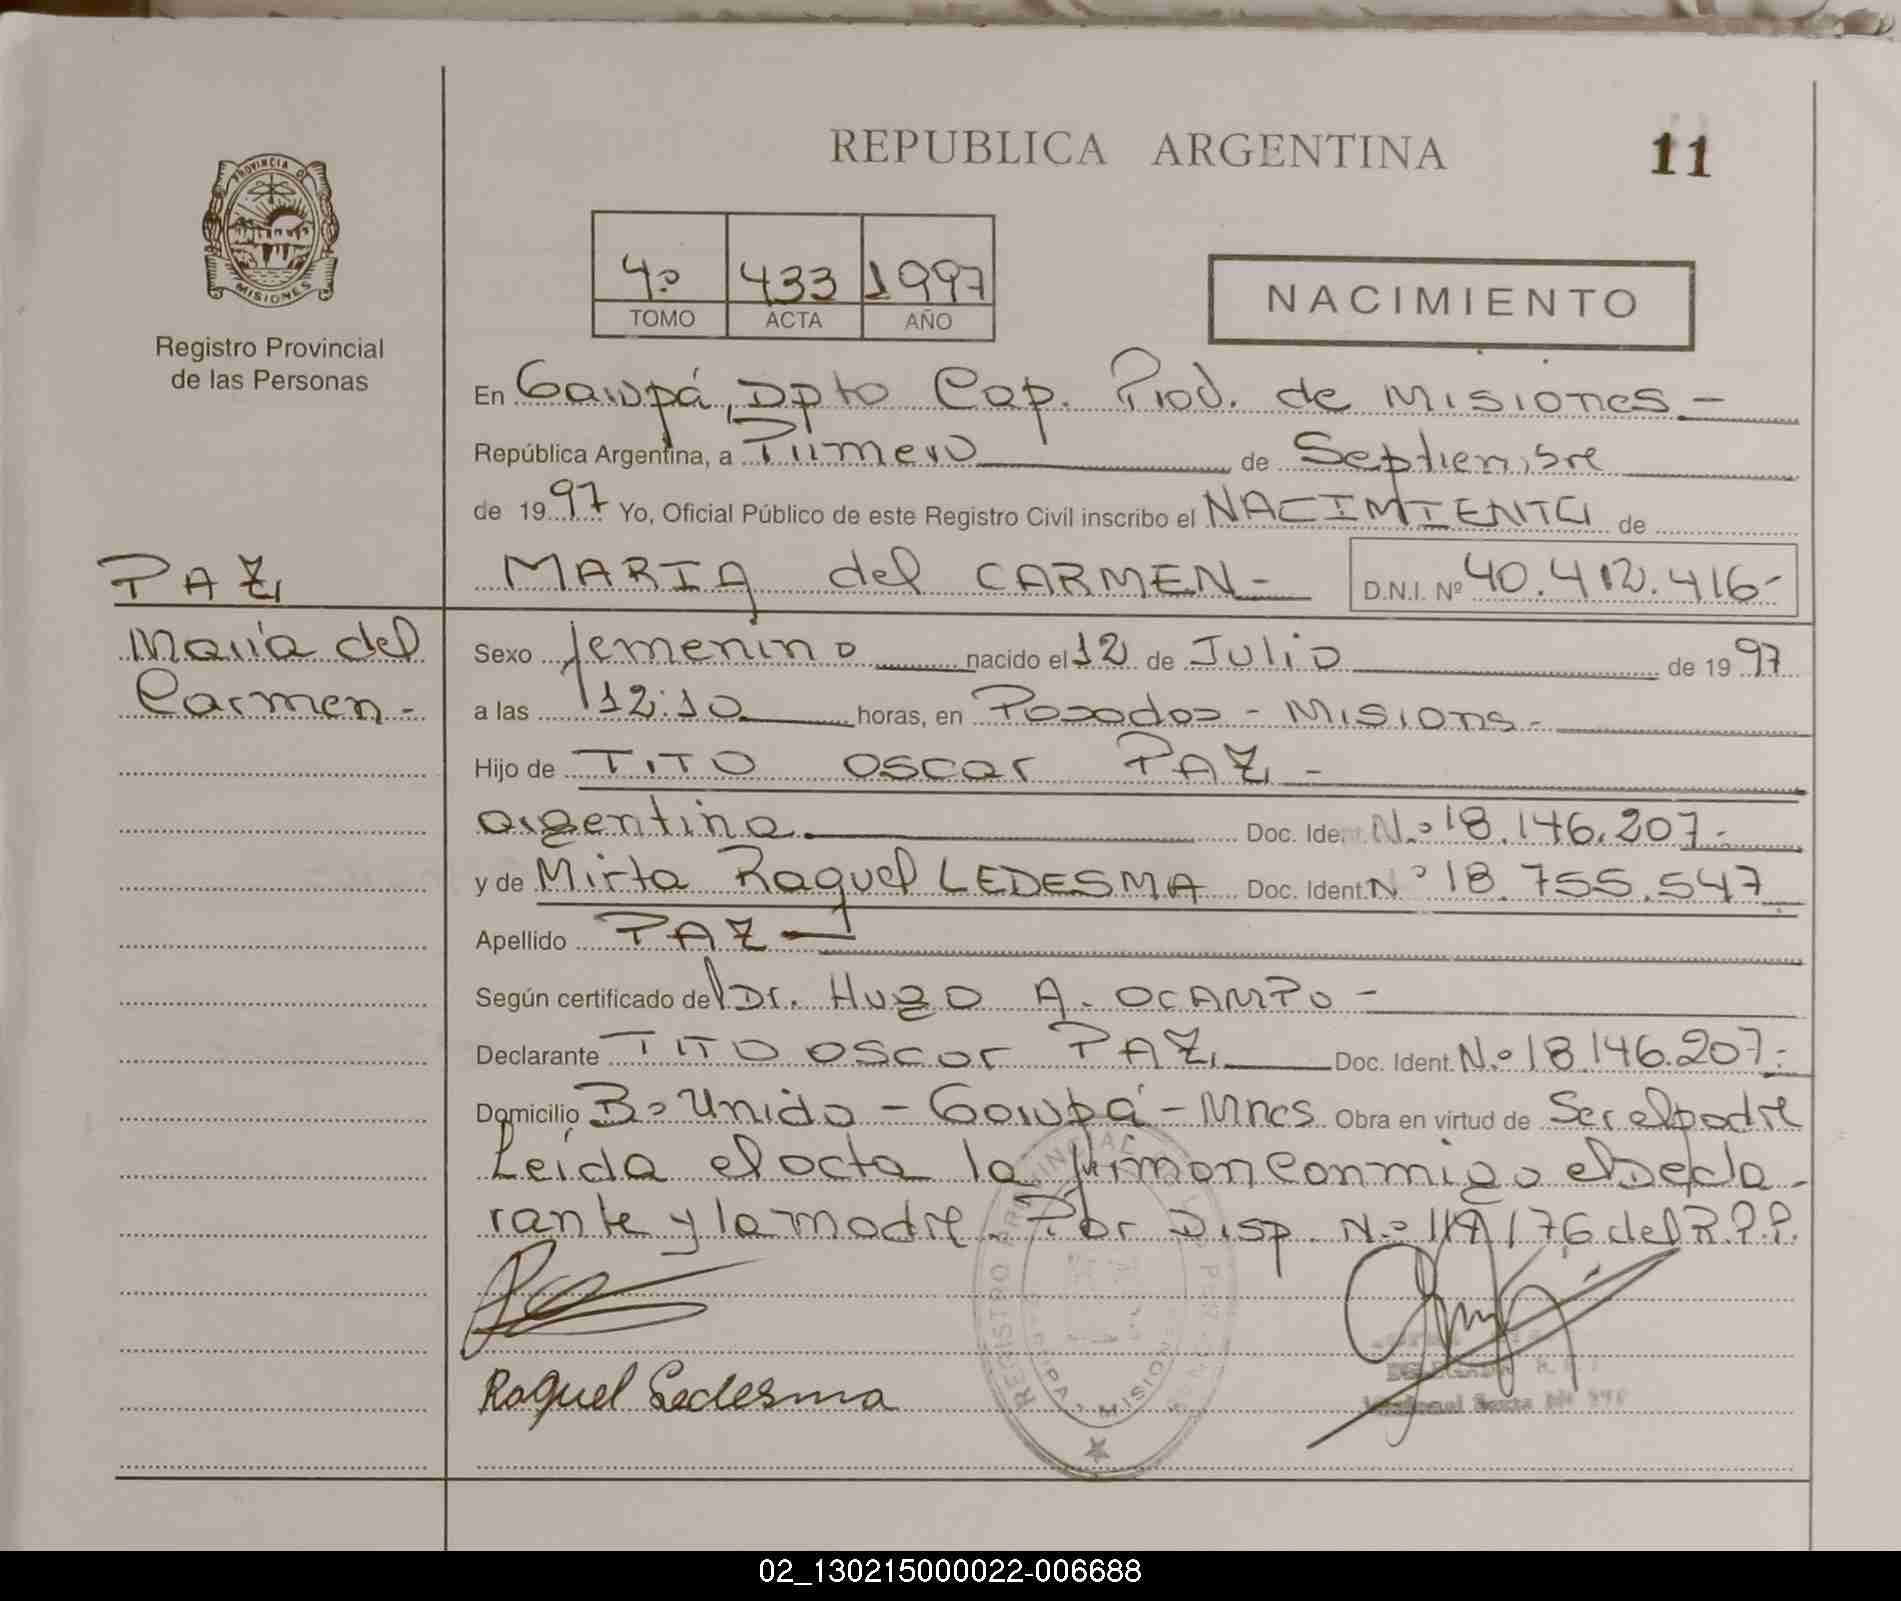 REPUBLICA ARGENTINA
11
PROVINCIA D
MISIONES
Registro Provincial
de las Personas
4º 433 1997
TOMO ACTA AÑO
NACIMIENTO
En Garupá, Dpto Cap. Prov. de Misiones -
República Argentina, a Primero de Septiembre
de 1997 Yo, Oficial Público de este Registro Civil inscribo el NACIMIENTO de
PAZ,
MARIA del CARMEN - D.N.I. Nº 40.412.416-
María del
Carmen -
Sexo femenino nacido el 12 de Julio de 1997
a las 12:10 horas, en Posadas - Misions -
Hijo de TITO OSCAR PAZ, -
argentina Doc. Ident. Nº 18.146.207 -
y de Mirta Raquel LEDESMA Doc. Ident. Nº 18.755.547
Apellido PAZ -
Según certificado del Dr. HUGO A. OCAMPO -
Declarante TITO OSCAR PAZ, Doc. Ident. Nº 18.146.207 -
Domicilio Bº Unido - Garupá - Mnes Obra en virtud de Ser el padre
Leída el acta la firman conmigo el Decla-
rante y la madre. Por Disp. Nº 119/76 del R.P.P.
Raquel Ledesma
REGISTRO PROVINCIAL
MISIONES
02_130215000022-006688